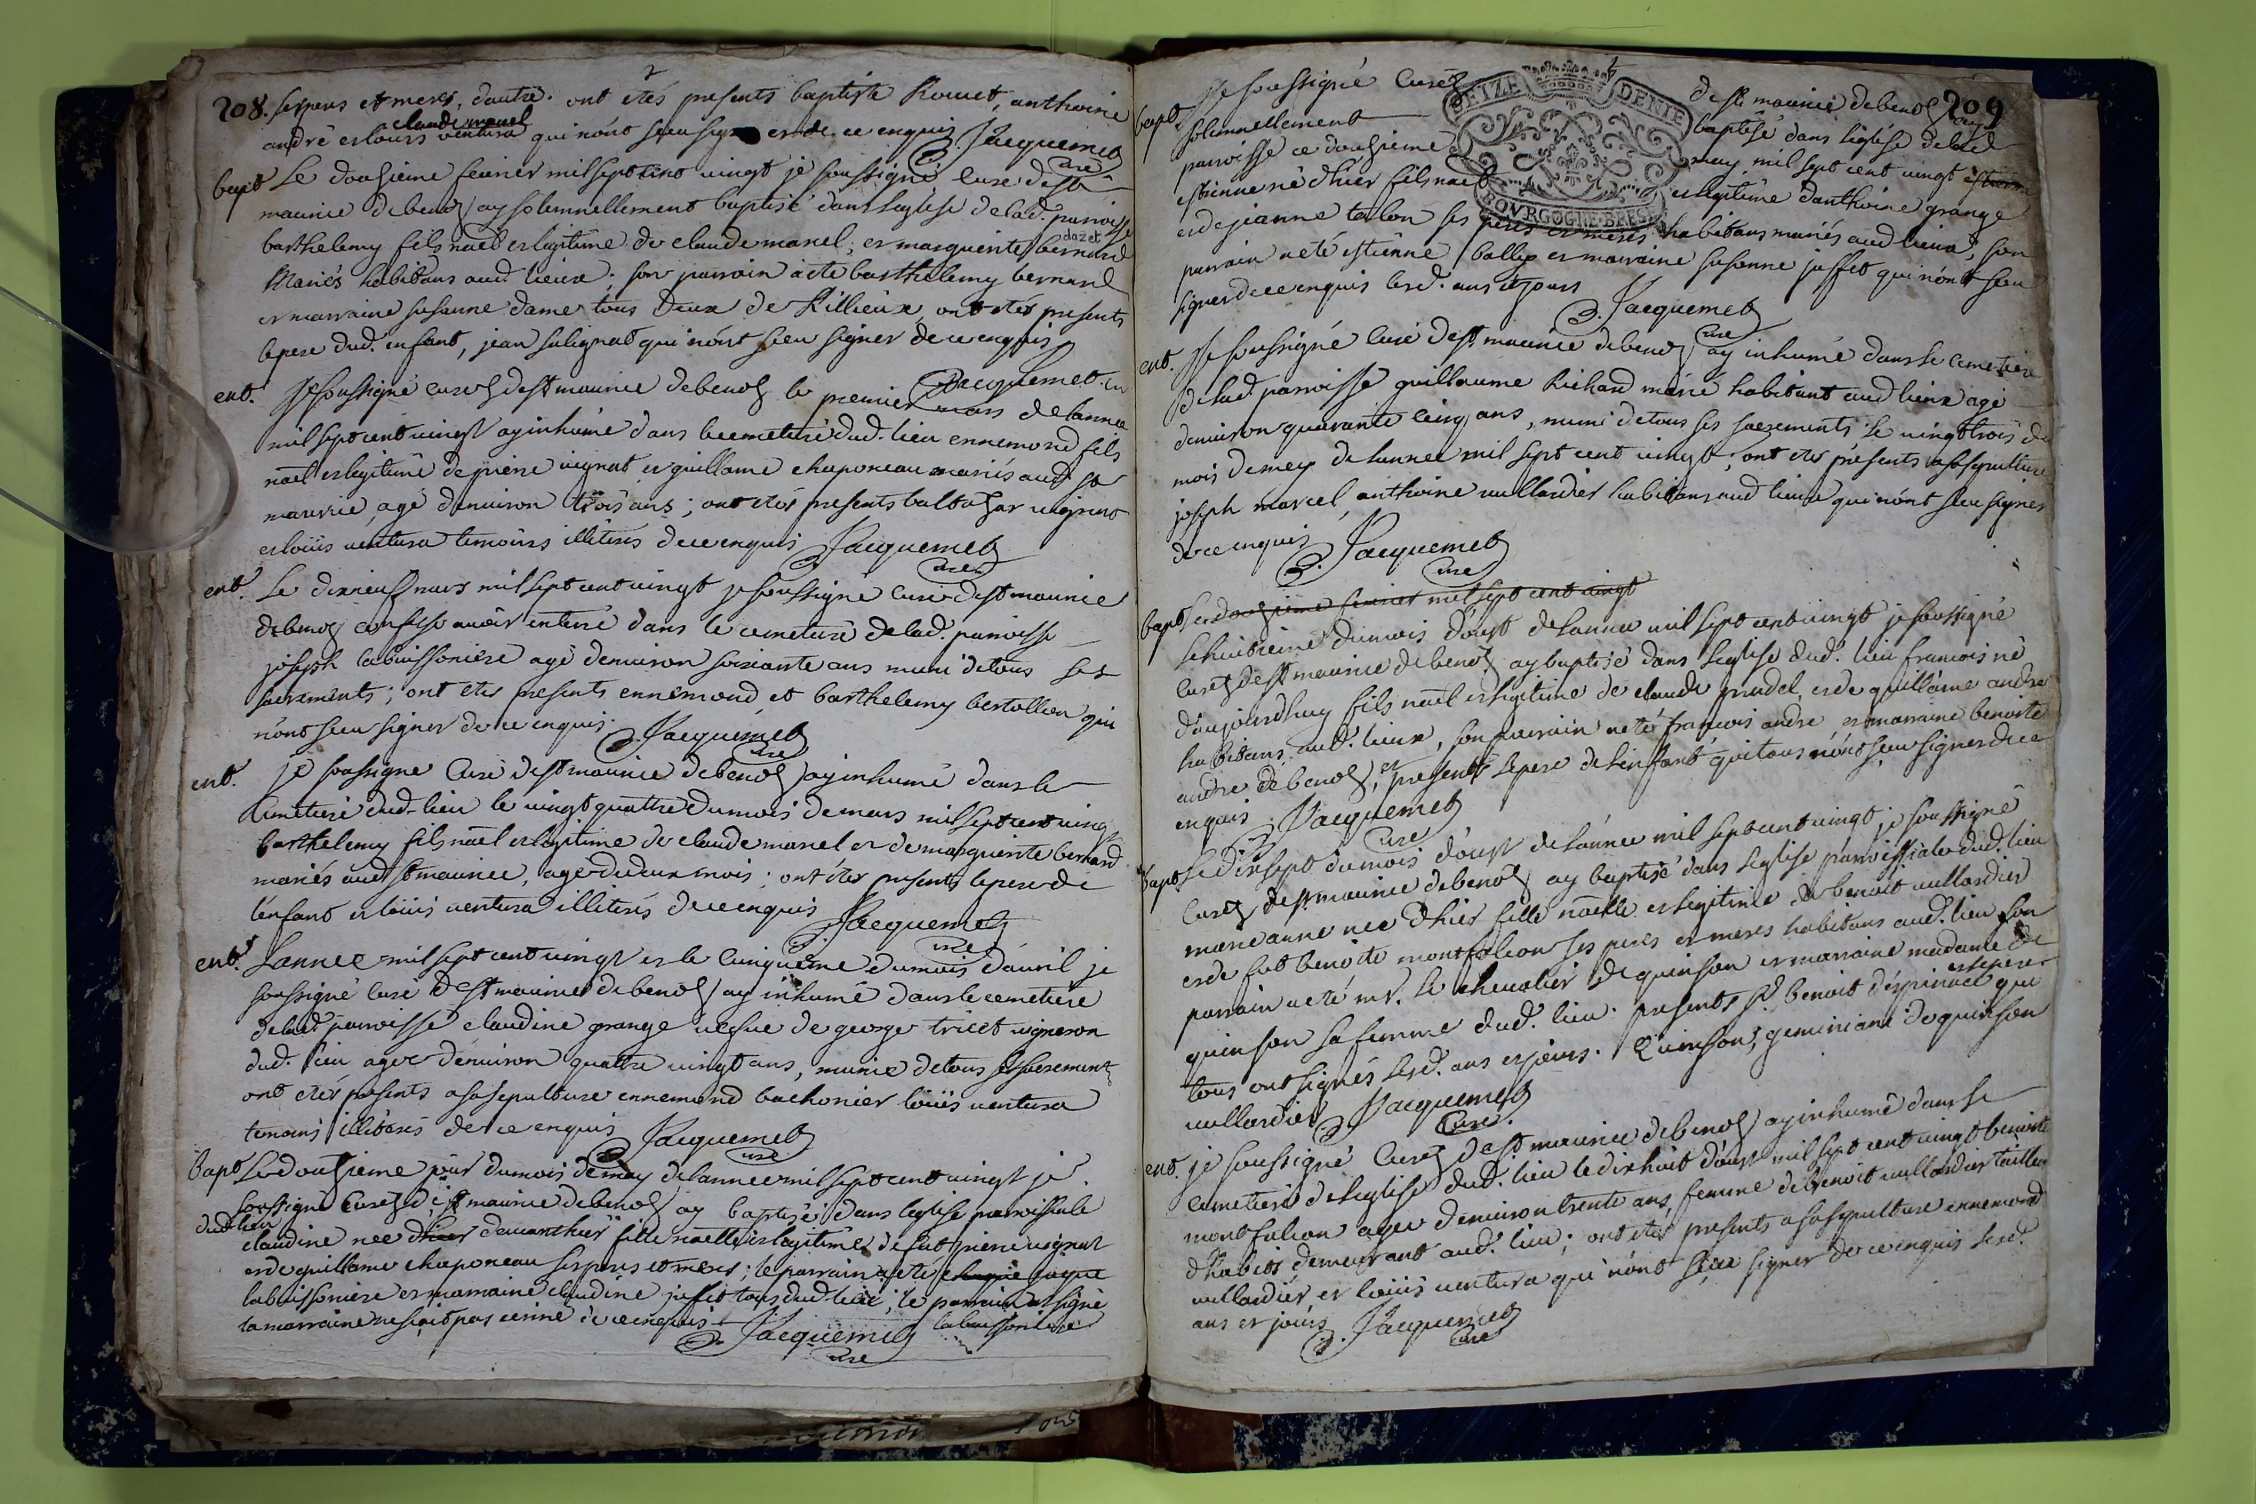 208. ses peres et meres, d'autre. ont étés presents baptiste Rouict, anthoine
claude manel
andrè et louis ventura qui n'ont sceu signer de ce enquis Jacquemet
curé
bapt Le douzieme fevrier mil sept cent vingt je soussigné curé de st
maurice de benoz ay solemnellement baptisé dans leglise de lad. paroisse
dazet
barthelemy fils nael et legitime de claude manel, et marguerite bernard
Mariés habitans aud. lieux; son parrain a eté barthelemy bernard
et marraine susanne dame tous deux de Rillieux, ont étés presents
le pere dud. enfant, jean salignat qui n'ont sceu signer de ce enquis
Jacquemet curé
ent. Je soussigné curez de st maurice de benoz le premier mars de lannee
mil sept cent vingt ay inhumé dans le cemetiere dud. lieu ennemond fils
nael et legitime de pierre vignat et guillame chaponeau mariés aud. st
maurice, agé denviron trois ans; ont etés presents baltazar vignat
et loüis ventura temoins illiterés de ce enquis Jacquemet
curé
ent. Le dixneufz mars mil sept cent vingt je soussigné curé de st maurice
de benoz confesse avoir enterré dans le cemetiere de lad. paroisse
joseph labuissoniere agé denviron soixante ans muni de tous ses
sacrements; ont etés presents ennemond et barthelemy bertollon qui
n'ont sceu signer de ce enquis. Jacquemet
curé
ent. je soussigné Curé de st maurice de benoz ay inhumé dans le
Cimetiere dud. lieu le vingt quattre du mois de mars mil sept cent vingt
barthelemy fils nael et legitime de claude manel et de marguerite bernard
mariés aud st maurice, agé de deux mois; ont étés presents le pere de
l'enfant et loüis ventura illiterés de ce enquis Jacquemet
curé
ent. Lannee mil sept cent vingt et le cinquieme du mois davril je
soussigné curé de st maurice de benoz ay inhumé dans le cemetiere
de lad. paroisse claudine grange vefve de george tricet vigneron
dud. lieu agée denviron quattre vingt ans, munie de tous ses sacremens
ont etés presents a sa sepulture ennemond bachonier loüis ventura
temoins illiterés de ce enquis Jacquemet
curé
bapt Le douzieme jour du mois de may de lannee mil sept cent vingt je
soussigné Curez de st maurice de benoz ay baptisé dans leglise parroissiale
dud lieu
claudine nee dhier devanthier fille naelle et legitime de fut pierre vignat
et de guillame chaponeau ses peres et meres; le parrain a eté jaque
labuissoniere et marraine claudine juffet tous dud. lieu; le parrain a signé
la marraine ne sçait pas ecrire de ce enquis Jacquemet labuissoniere
curé
209
bapt. Je soussigné Curéz de st maurice de benoz ay
solemnellement baptisé dans leglise de lad
paroisse ce douzieme may mil sept cent vingt
estienne né dhier fils nael et legitime danthoine grange
et de jeanne talon ses peres et meres habitans mariés aud lieux, son
parrain a eté estienne ballip et marraine susanne juffet qui n'ont sceu
signer de ce enquis lesd. ans et jours
Jacquemet
curé
SEIZE DENIE
BOVRGOGNE BRES
ent. Je soussigné curé de st maurice de benoz ay inhumé dans le cemetiere
de lad. paroisse guillaume Richard marié habitant aud lieux agé
denviron quarante cinq ans, muni de tous ses sacrements le vingt trois du
mois de mey de lannee mil sept cent vingt; ont etés presents a sa sepulture
joseph marcel, anthoine vullardier habitans aud lieux qui n'ont sceu signer
de ce enquis Jacquemet
curé
bapt Le douzieme fevrier mil sept cent vingt
Le huitieme du mois d'oust de lannee mil sept cent vingt je soussigné
Curez de st maurice de benoz ay baptisé dans leglise dud. lieu francois né
daujourdhuy fils nael et legitime de claude grudel, et de guillame andre
habitans aud. lieux, son parrain a eté francois andre et marraine benoite
andre de benoz, et presents le pere de lenfant qui tous n'ont sceu signer de ce
enquis Jacquemet
curé
bapt Le dixsept du mois d'oust de lannee mil sept cent vingt je soussigné
Curez de st maurice de benoz ay baptisé dans leglise parroissiale dud. lieu
marie anne nee dhier fille naelle et legitime de benoit vullardier
et de fut benoite montfalcon ses peres et meres habitans aud. lieu son
parrain a eté mr. le chevalier de quinson et marraine madame de
quinson sa femme dud. lieu. presents sr benoit d'espinace et le pere qui
tous ont signés lesd. ans et jours. Quinson, geminiani de quinson
vullardier Jacquemet
Curé.
ent. je soussigné Curez de st maurice de benoz ay inhumé dans le
Cemetiere de leglise dud. lieu le dixhuit d'oust mil sept cent vingt benoite
montfalcon agee denviron trente ans, femme de benoit vullardier tailleur
d'habits demeurant aud. lieu; ont etés presents a sa sepulture ennemond
vullardier et loüis ventura qui n'ont sceu signer de ce enquis lesd.
ans et jours Jacquemet
curé